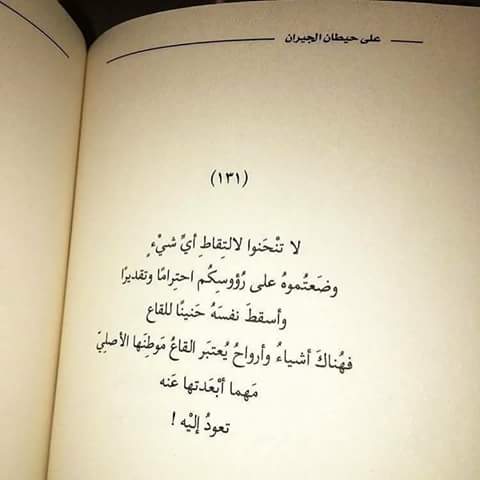 على حيطان الجيران
(١٣١)
لا تنْحَنوا لالتِقاطِ أيِّ شيْءٍ
وضَعتُموهُ على رُؤوسِكُم احتِرامًا وتقديرًا
وأسقطَ نفسَهُ حَنينًا للقاع
فهُناكَ أشياءُ وأرواحُ يُعتبَر القاعُ مَوطِنَها الأصليَ
مَهما أبْعَدتها عَنه
تعودُ إليْه !